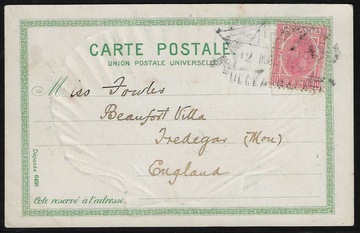 CARTE POSTALE.
UNION POSTALE UNIVERSELLE
Miss Fowler
Beaufort Villa
Tredegar (Mon)
England
Déposée 6489
Côté reservé à l'adresse.